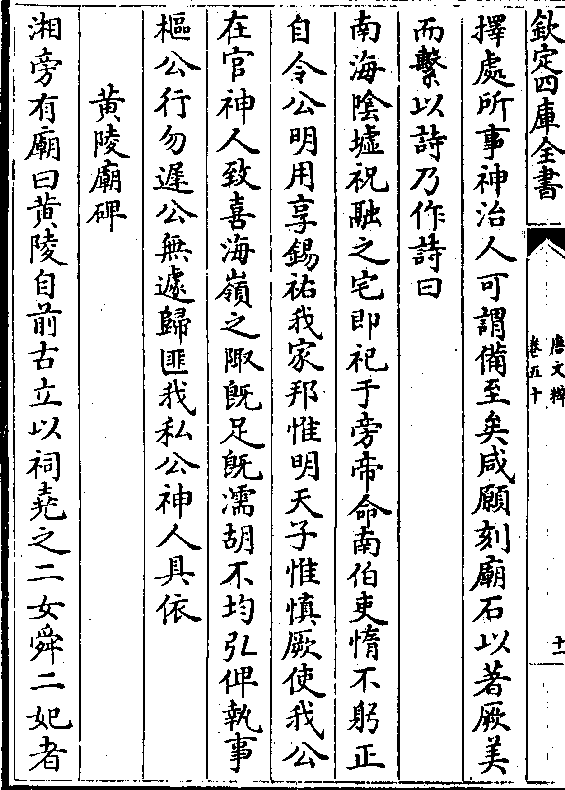 欽定四庫全書
唐文粹
卷五十
十一
擇處所事神治人可謂備至矣咸願刻廟石以著厥美
而繫以詩乃作詩曰
南海陰墟祝融之宅即祀于旁帝命南伯吏惰不躬正
自令公明用享錫祐我家邦惟明天子惟慎厥使我公
在官神人致喜海嶺之陬既足既濡胡不均弘俾執事
樞公行勿遲公無遽歸匪我私公神人具依
黄陵廟碑
湘旁有廟曰黄陵自前古立以祠堯之二女舜二妃者